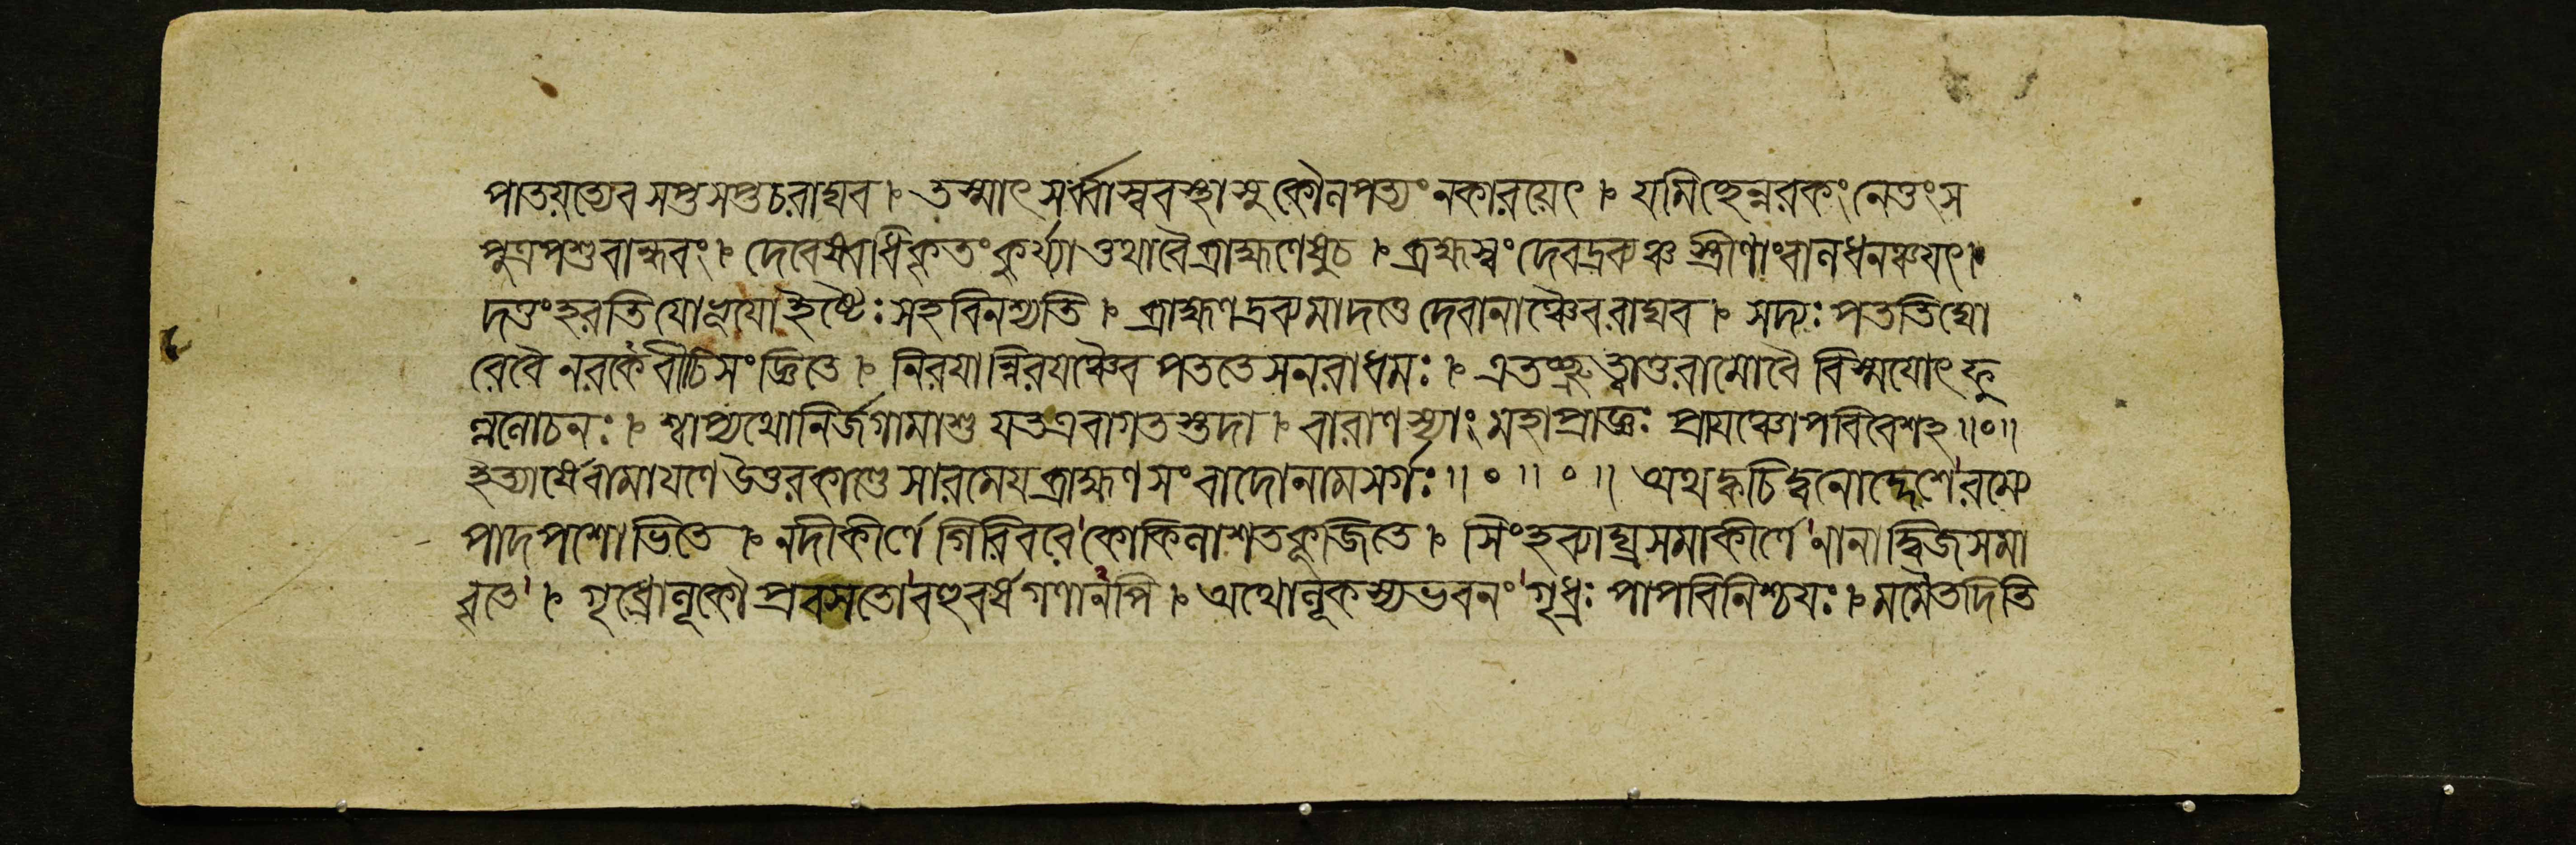 পাতয়ত্যেব সপ্তসপ্তচরাঘব ৷ তস্মাৎ সর্ব্বাস্ববস্থাসু কৌলপত্যং নকারয়েৎ ৷ যমিচ্ছেন্নরকংনেতুংস
পুত্রপশুবান্ধবং ৷ দেবেষ্বধিকৃতংকুর্য্যাত্তথাবৈব্রাহ্মণেষুচ ৷ ব্রহ্মস্বংদেবদ্রব্যঞ্চ স্ত্রীণাংবালধনঞ্চযৎ ৷
দত্তংহরতি যোলোভাদিষ্টৈঃ সহবিনশ্যতি ৷ ব্রাহ্মণদ্রব্যমাদত্তে দেবানাঞ্চৈবরাঘব ৷ সদ্যঃ পততিঘো
রেবৈ নরকেবীচিসংজ্ঞিতে ৷ নিরয়ান্নিরয়ঞ্চৈব পততেসনরাধমঃ ৷ এতচ্ছ্রুত্বাতুরামোবৈ বিস্ময়োৎফু
ল্ললোচনঃ ৷ শ্বাপ্যথোনির্জগামাশু যতএবাগতস্তদা ৷ বারাণস্যাং মহাপ্রাজ্ঞঃ প্রায়ঞ্চোপবিবেশহ ৷৷ ° ৷৷
ইত্যার্ষেরামায়ণে উত্তরকাণ্ডে সারমেয়ব্রাহ্মণসংবাদোনামসর্গঃ ৷৷ ° ৷৷ ° ৷৷ অথক্বচিদ্বনোদ্দেশেরম্যে
পাদপশোভিতে ৷ নদীকীর্ণে গিরিবরে কোকিলাশতকূজিতে ৷ সিংহব্যাঘ্রসমাকীর্ণে নানাদ্বিজসমা
বৃতে ৷ গৃধ্রোলূকৌ প্রবসতো বহুবর্ষগণানপি ৷ অথোলূকস্যভবনং গৃধ্রঃ পাপবিনিশ্চয়ঃ ৷ মমৈতদিতি